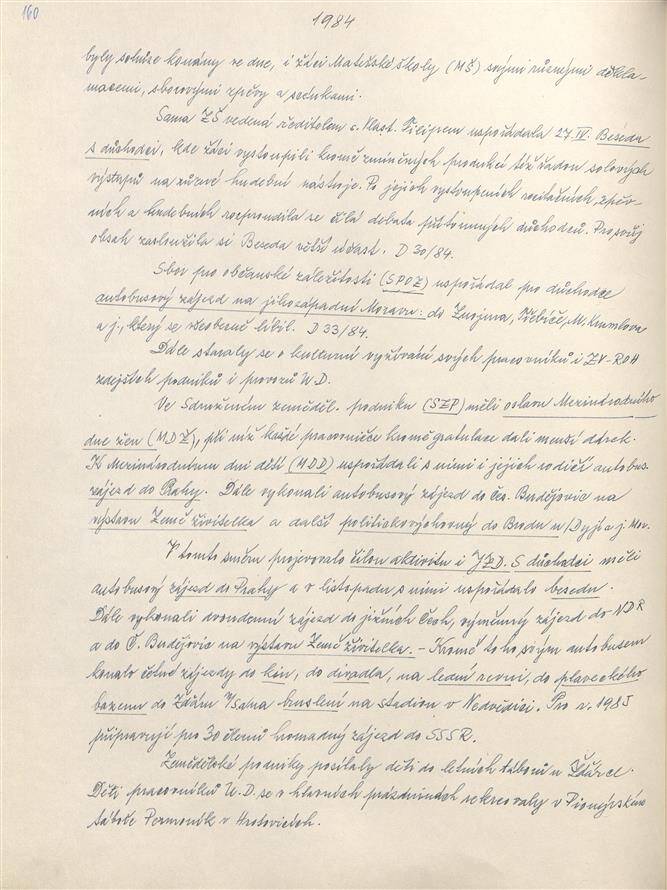 160
1984
byly schůze konány ve dne, i žáci Mateřské školy (MŠ) svými různými dekla-
macemi, sborovými zpěvy a scénkami.
Sama ZŠ vedená ředitelem s. Vlast. Filipem uspořádala 27.IV. Besedu
s důchodci, kde žáci vystoupili kromě zmíněných produkcí též řadou solových
výstupů na různé hudební nástroje. Po jejich vystoupeních recitačních, zpěv-
ních a hudebních rozproudila se čilá debata přítomných důchodců. Pro svůj
obsah zasloužila si Beseda větší účast. D 30/84.
Sbor pro občanské záležitosti (SPOZ) uspořádal pro důchodce
autobusový zájezd na jihozápadní Moravu: do Znojma, Třebíče, M. Krumlova
a j., který se všeobecně líbil. D 33/84.
Dále staraly se o kulturní vyžívání svých pracovníků i ZV-ROH
zdejších podniků i provozů U.D.
Ve Sdruženém zeměděl. podniku (SZP) měli oslavu Mezinárodního
dne žen (MDŽ), při níž každé pracovnici kromě gratulace dali menší dárek.
K Mezinárodnímu dni dětí (MDD) uspořádali s nimi i jejich rodiči autobus.
zájezd do Prahy. Dále vykonali autobusový zájezd do Čes. Budějovic na
výstavu Země živitelka a další politickovýchovný do Brodu n/Dyjí a j. Mor.
V tomto směru projevovalo čilou aktivitu i JZD. S důchodci měli
autobusový zájezd do Prahy a v listopadu s nimi uspořádalo besedu.
Dále vykonali dvoudenní zájezd do jižních Čech, výměnný zájezd do NDR
a do Č. Budějovic na výstavu Země živitelka. – Kromě toho svým autobusem
konalo četné zájezdy do kin, do divadla, na lední revui, do plaveckého
bazenu do Žďáru n/Sáz. a bruslení na stadion v Nedvědici. Pro r. 1985
připravují pro 30 členů hromadný zájezd do SSSR.
Zemědělské podniky posílaly děti do letních táborů u Ždárce.
Děti pracovníků U.D. se o hlavních prázdninách rekreovaly v Pionýrském
táboře Permoník v Hrotovicích.